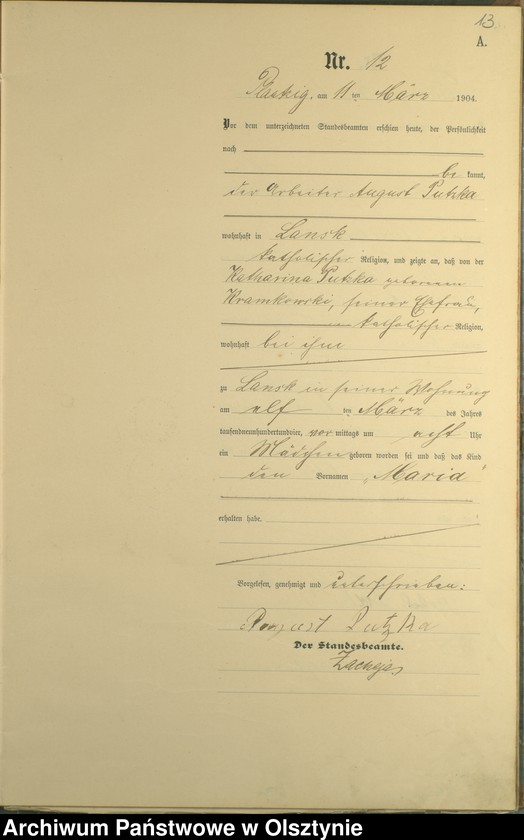 13.
A.
Nr. 12
am 11 ten März 1904.
Vor dem unterzeichneten Standesbeamten erschien heute, der Persönlichkeit
nach
be kannt,
der Arbeiter August Putzka
wohnhaft in Lansk
katholischer Religion, und zeigte an, daß von der
Katharina Putzka geborenen
Kramkowski, seiner Ehefrau,
katholischer Religion,
wohnhaft bei ihm
zu Lansk in seiner Wohnung
am elf ten März des Jahres
tausendneunhundertundvier, vor mittags um acht Uhr
ein Mädchen geboren worden sei und daß das Kind
den Vornamen „Maria"
erhalten habe.
Vorgelesen, genehmigt und unterschrieben:
August Putzka
Der Standesbeamte.
Archiwum Państwowe w Olsztynie